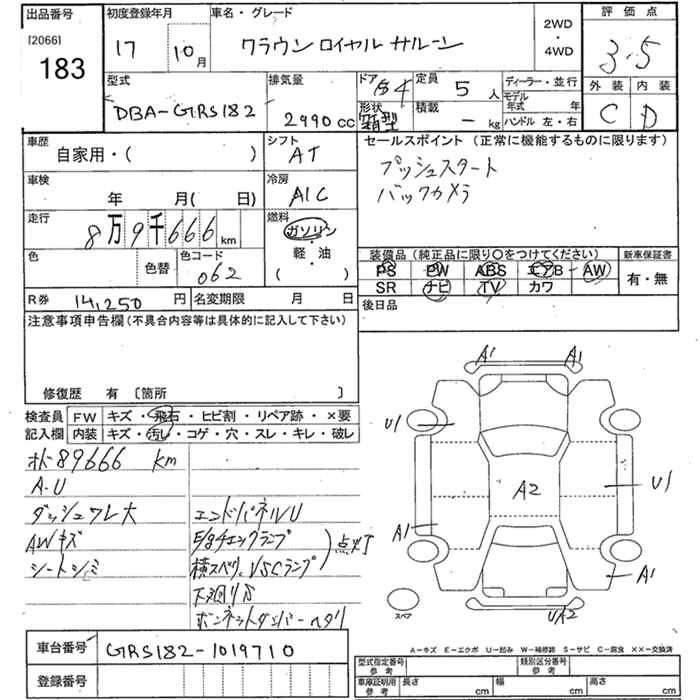 出品番号 初度登録年月 車名・グレード 2WD・4WD 評価点
[2066] 183 17 10月 クラウン ロイヤル サルーン 3.5
型式 排気量 ドア 定員 ディーラー・並行 外装 内装
DBA-GRS182 2990 cc 4 5人 モデル年式 年 C D
形状 箱型 積載 - kg ハンドル 左・右
車歴 シフト セールスポイント (正常に機能するものに限ります)
自家用・( ) AT プッシュスタート
車検 冷房 バックカメラ
年 月( 日) A/C
走行 燃料
8万9千666km ガソリン・軽・油 ( )
色 色替 色コード 062
装備品 (純正品に限り○をつけてください) 新車保証書
PS PW ABS エアB AW 有・無
SR ナビ TV カワ
R券 14,250円 名変期限 月 日 後日品
注意事項申告欄(不具合内容等は具体的に記入して下さい)
修復歴 有 〔箇所 〕
検査員記入欄 FW キズ・飛石・ヒビ割・リペア跡・×要
内装 キズ・汚レ・コゲ・穴・スレ・キレ・破レ
A1 A1
U1
A2 U1
A1
A1
スペア UA2
ホド89666 km
A・U
ダッシュワレ大 エンドパネルU
AWキズ E/gチェックランプ
シートシミ 横スベリ、VSCランプ 点灯
下廻りサ
ボンネットダンパーヘタリ
車台番号 GRS182-1019710
登録番号
A-キズ E-エクボ U-凹み W-補修跡 S-サビ C-腐食 ××-交換済
型式指定番号 参考 類別区分番号 参考
車庫証明用 参考 長さ cm 幅 cm 高さ cm